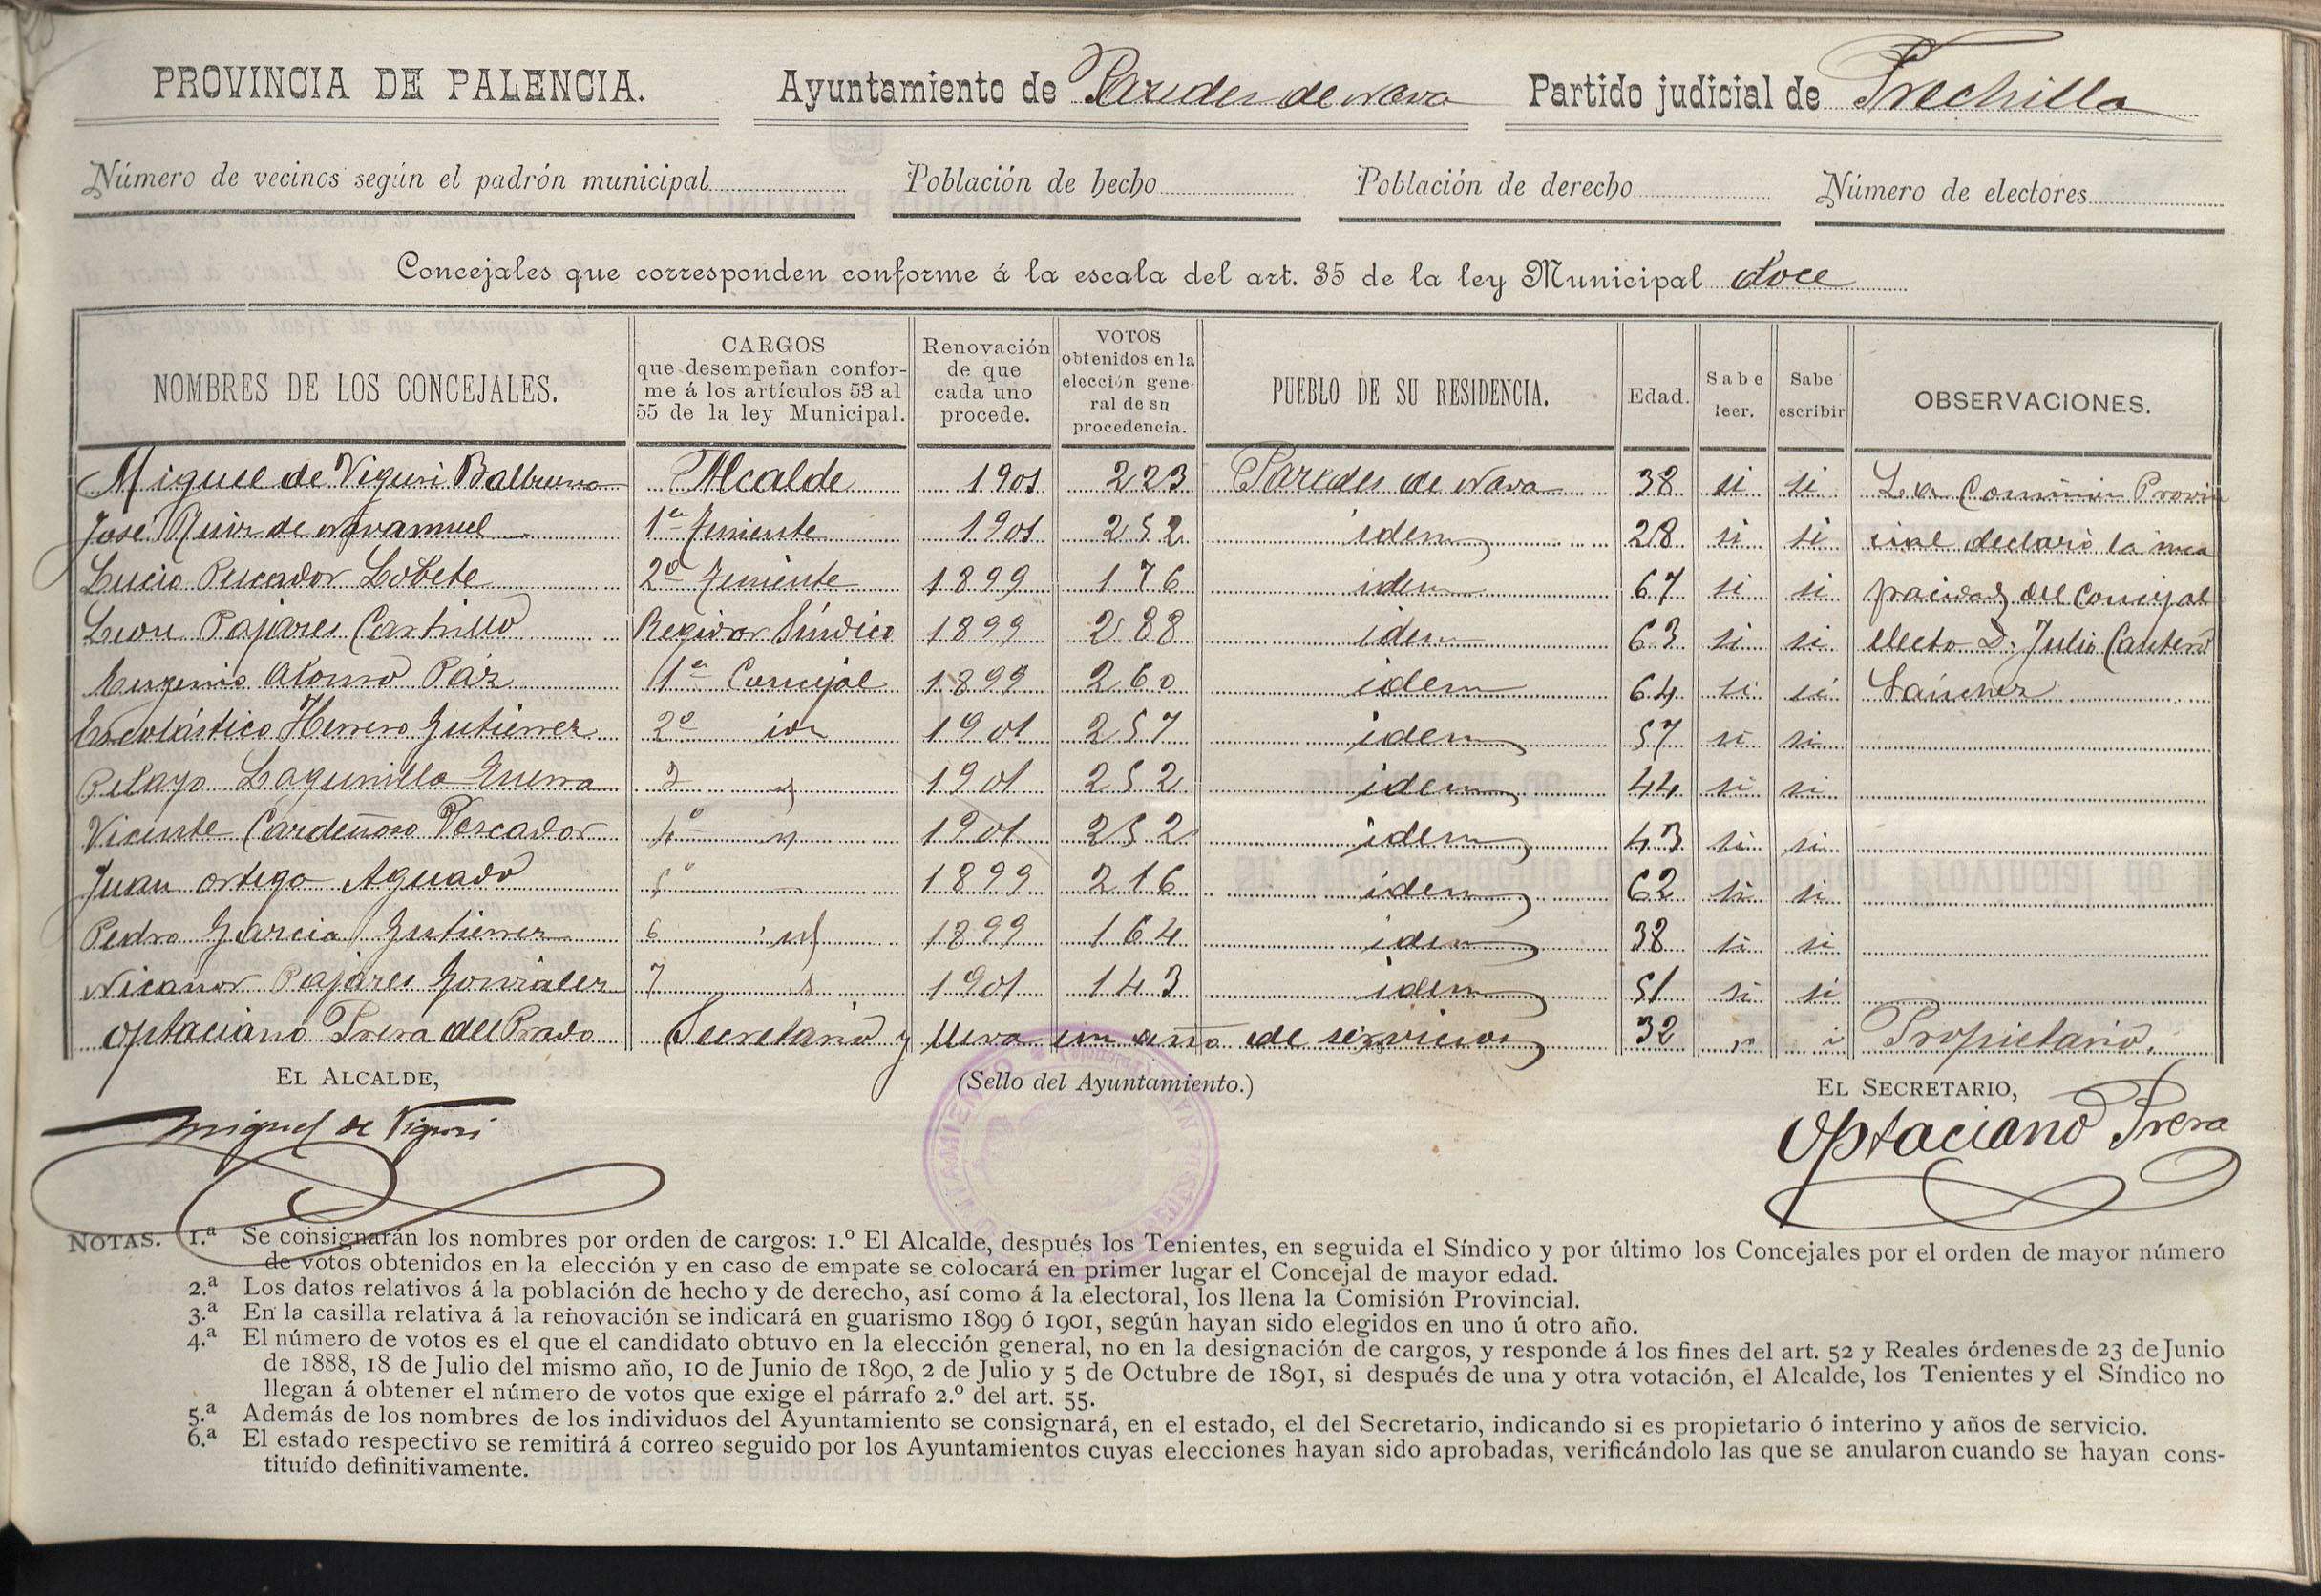 PROVINCIA DE PALENCIA. Ayuntamiento de Paredes de Nava Partido judicial de Frechilla
Número de vecinos según el padrón municipal Población de hecho Población de derecho Número de electores
Concejales que corresponden conforme á la escala del art. 35 de la ley Municipal doce
NOMBRES DE LOS CONCEJALES. CARGOS que desempeñan conforme á los artículos 53 al 55 de la ley Municipal. Renovación de que cada uno procede. VOTOS obtenidos en la elección general de su procedencia. PUEBLO DE SU RESIDENCIA. Edad. Sabe leer. Sabe escribir OBSERVACIONES.
Miguel de Viguri Balbuena Alcalde 1901 223 Paredes de Nava 38 si si La Comisión Provin
José Ruiz de Navamuel 1er Teniente 1901 252 idem 28 si si cial declaró la inca
Lucio Pescador Lobete 2º Teniente 1899 176 idem 67 si si pacidad del Concejal
Leon Pajares Castrillo Regidor Síndico 1899 288 idem 63 si si electo D. Julio Cantero
Eugenio Alonso Paz 1er Concejal 1899 260 idem 64 si si Sánchez
Escolástico Herrero Gutierrez 2º id 1901 257 idem 57 si si
Pelayo Lagunilla Guerra 3 id 1901 252 idem 44 si si
Vicente Cardeñoso Pescador 4º 1901 252 idem 43 si si
Juan Ortega Aguado 5º 1899 216 idem 62 si si
Pedro Garcia Gutierrez 6 id 1899 164 idem 38 si si
Nicanor Pajares Gonzalez 7 1901 143 idem 51 si si
Optaciano Prera del Prado Secretario y lleva un año de servicios 32 Propietario.
EL ALCALDE, (Sello del Ayuntamiento.) EL SECRETARIO,
Miguel de Viguri Optaciano Prera
NOTAS. 1.ª Se consignarán los nombres por orden de cargos: 1.º El Alcalde, después los Tenientes, en seguida el Síndico y por último los Concejales por el orden de mayor número
de votos obtenidos en la elección y en caso de empate se colocará en primer lugar el Concejal de mayor edad.
2.ª Los datos relativos á la población de hecho y de derecho, así como á la electoral, los llena la Comisión Provincial.
3.ª En la casilla relativa á la renovación se indicará en guarismo 1899 ó 1901, según hayan sido elegidos en uno ú otro año.
4.ª El número de votos es el que el candidato obtuvo en la elección general, no en la designación de cargos, y responde á los fines del art. 52 y Reales órdenes de 23 de Junio
de 1888, 18 de Julio del mismo año, 10 de Junio de 1890, 2 de Julio y 5 de Octubre de 1891, si después de una y otra votación, el Alcalde, los Tenientes y el Síndico no
llegan á obtener el número de votos que exige el párrafo 2.º del art. 55.
5.ª Además de los nombres de los individuos del Ayuntamiento se consignará, en el estado, el del Secretario, indicando si es propietario ó interino y años de servicio.
6.ª El estado respectivo se remitirá á correo seguido por los Ayuntamientos cuyas elecciones hayan sido aprobadas, verificándolo las que se anularon cuando se hayan cons-
tituído definitivamente.